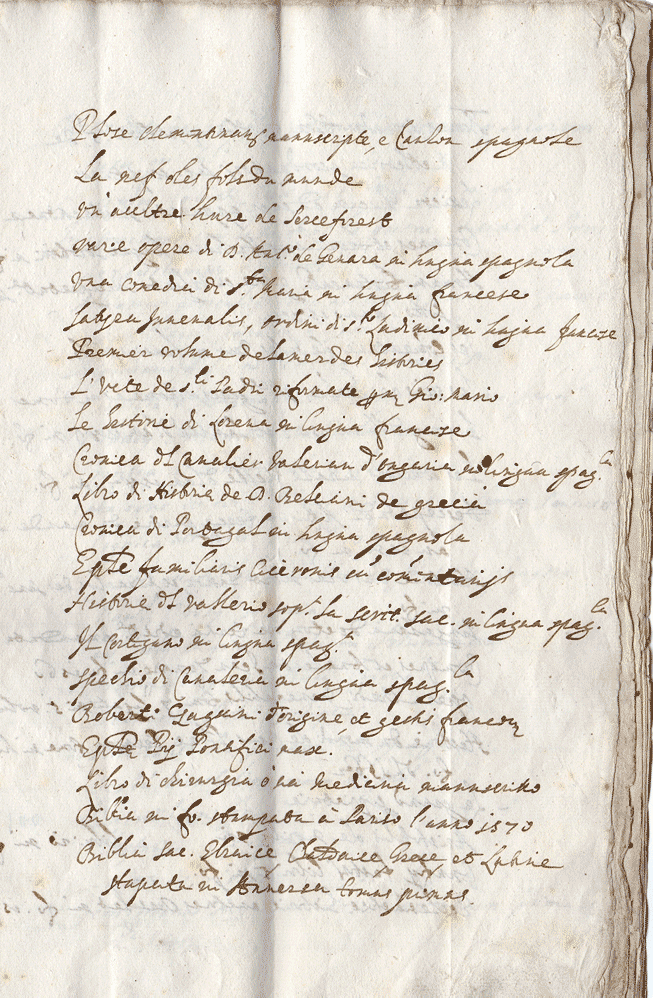 Glose clementinarum manuscripte, e Canzon spagnole
La nef des fols du munde
un aultre livre de Percefirest
varie opere di D. Ant.º de Genara in lingua spagnola
una comedia di S.ta Maria in lingua francese
Satyra Juvenalis, ordini di S.to Ludovico in lingua francese
Premier volume de la mer des histories
L'vite de S.ti Padri riformate per Gio: Mario
Le historie di Lorena in lingua francese
Cronica del Cavalier Valerian d'ongaria in lingua spag.la
Libro di Historia de D. Belcini de grecia
Cronica di Portogal in lingua spagnola
Epte familiaris Ciceronis cu' comentarijs
Historie del Vallerio sop.a la scrit. sac. in lingua spag.la
Il cortegiano in lingua spag.la
Spechio di Cavaleria in lingua spag.la
Roberti Gaguini d'origine, et gestis francorum
Epte Pij Pontifici max.
Libro di chirurgia o ver medicina manuscritto
Biblia in fo. stampata a Pariso l'anno 1570
Biblia sac. Ebraice Chaldaice Grece et Latine
stapata in Anversa tomus primus.